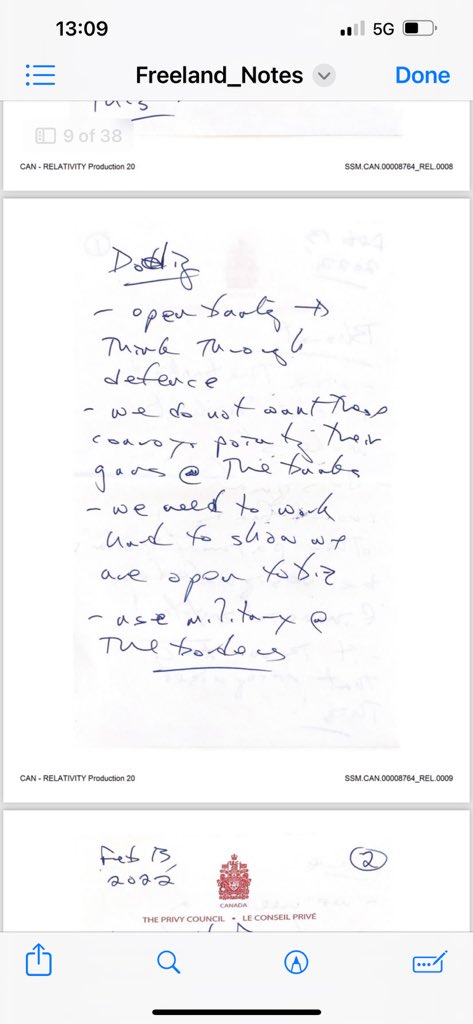 13:09
5G
Freeland_Notes
Done
This
9 of 38
CAN - RELATIVITY Production 20
SSM.CAN.00008764_REL.0008
Dodiz
- open banking →
Think Through
defence
- we do not want these
convoys pointing their
guns @ The banks
- we need to work
hard to show we
are open to biz
- use military @
The borders
CAN - RELATIVITY Production 20
SSM.CAN.00008764_REL.0009
Feb 13,
2022
2
CANADA
THE PRIVY COUNCIL • LE CONSEIL PRIVÉ